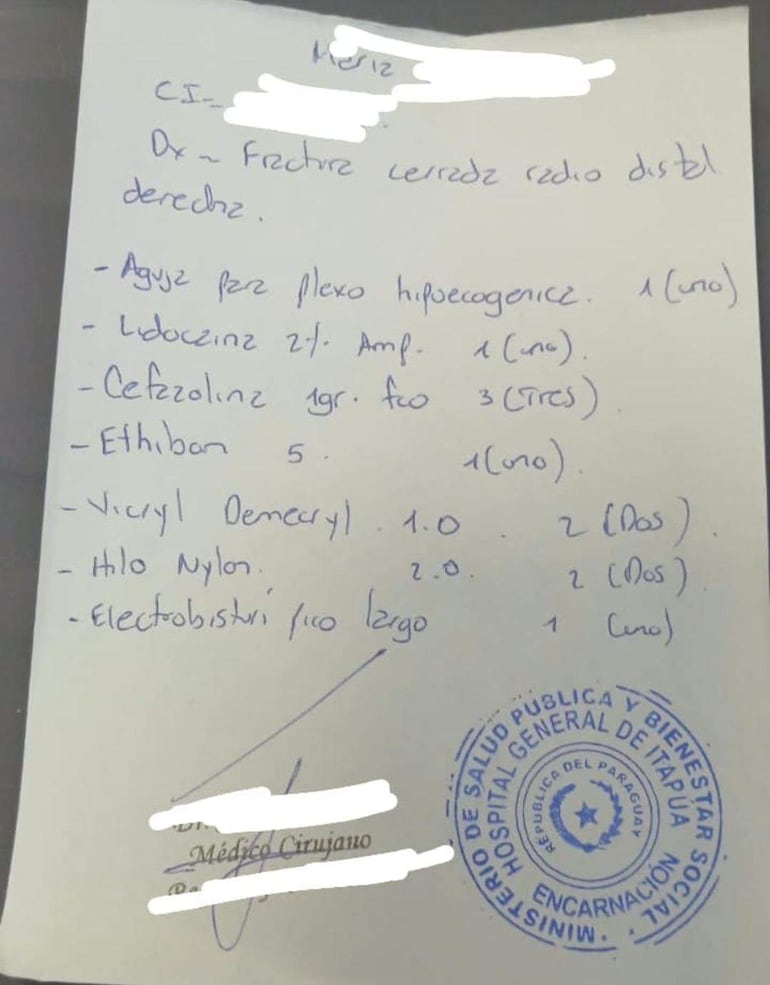 Meriz
CI-
Dx ~ Fractura cerrada radio distal
derecha.
- Aguja para plexo hipoecogenica. 1 (uno)
- Lidocaina 2%. Amp. 1 (uno).
- Cefazolina 1gr. fco 3 (Tres).
- Ethibon 5. 1 (uno).
- Vicryl Demecryl. 1.0. 2 (Dos).
- Hilo Nylon. 2.0. 2 (Dos).
- Electrobisturi pico largo 1 (uno)
Médico Cirujano
MINISTERIO DE SALUD PUBLICA Y BIENESTAR SOCIAL
HOSPITAL GENERAL DE ITAPÚA
REPUBLICA DEL PARAGUAY
ENCARNACIÓN